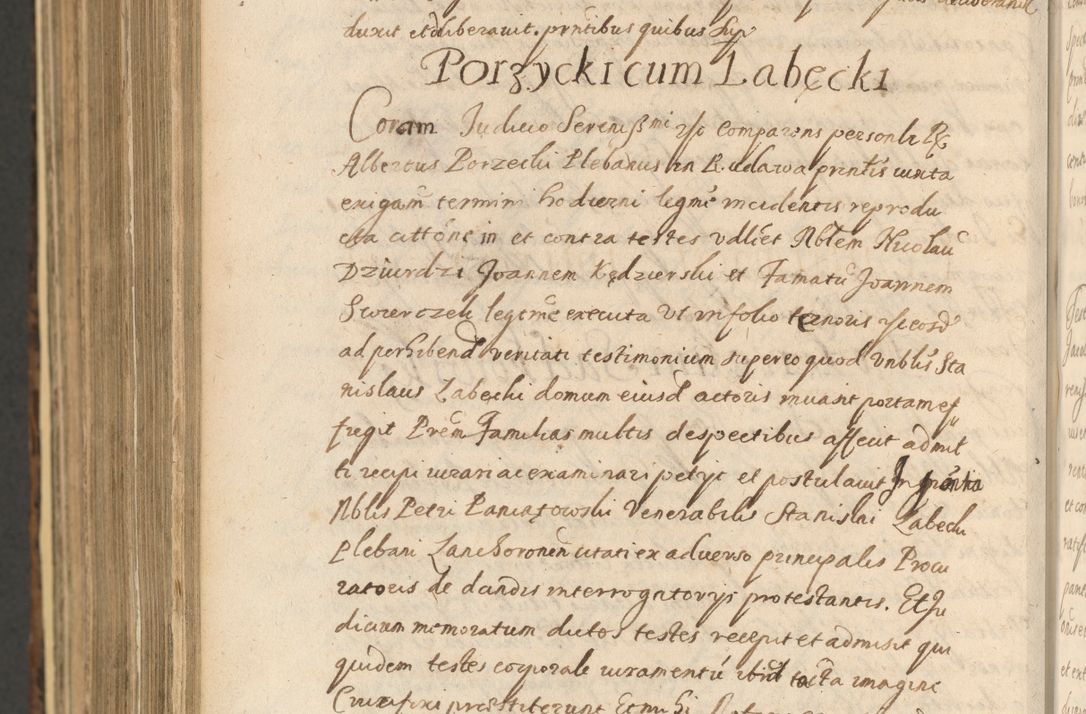 duxit et deliberavit. pntibus quibus sup
Porzycki cum Labęcki
Coram Judicio Sereniss mi comparens personlr
Albertus Porzecki Plebanus in Rudawa pntis iuxta
exigam termini hodierni legme incidentis reprodu
cta cittone in et contra testes vdlicet Nblem Nicolau
Dziurdzi Joannem Kędzierski et Famatu Joannem
Swierczek legtme executa Vt in folio tenoris
ad perhibend veritati testimonium super eo quod Vnblis Sta
nislaus Labęcki domum eiusd actoris invasit portam ef
fregit Prem Familias multis despectibus affecit admit
ti recipi iurari ac examinari petyt et postulavit In pntia
Nblis Petri Paniątowski Venerabilis Stanislai Labęcki
Plebani Lanckoronen citati ex adverso principalis Procu
ratoris de dandis interrogatorijs protestantis. Et Ju
dicium memoratum dictos testes recepit et admisit qui
quidem testes corporale iuramentu ibid tacta imagine
Crucifixi praestiterunt Et mihi